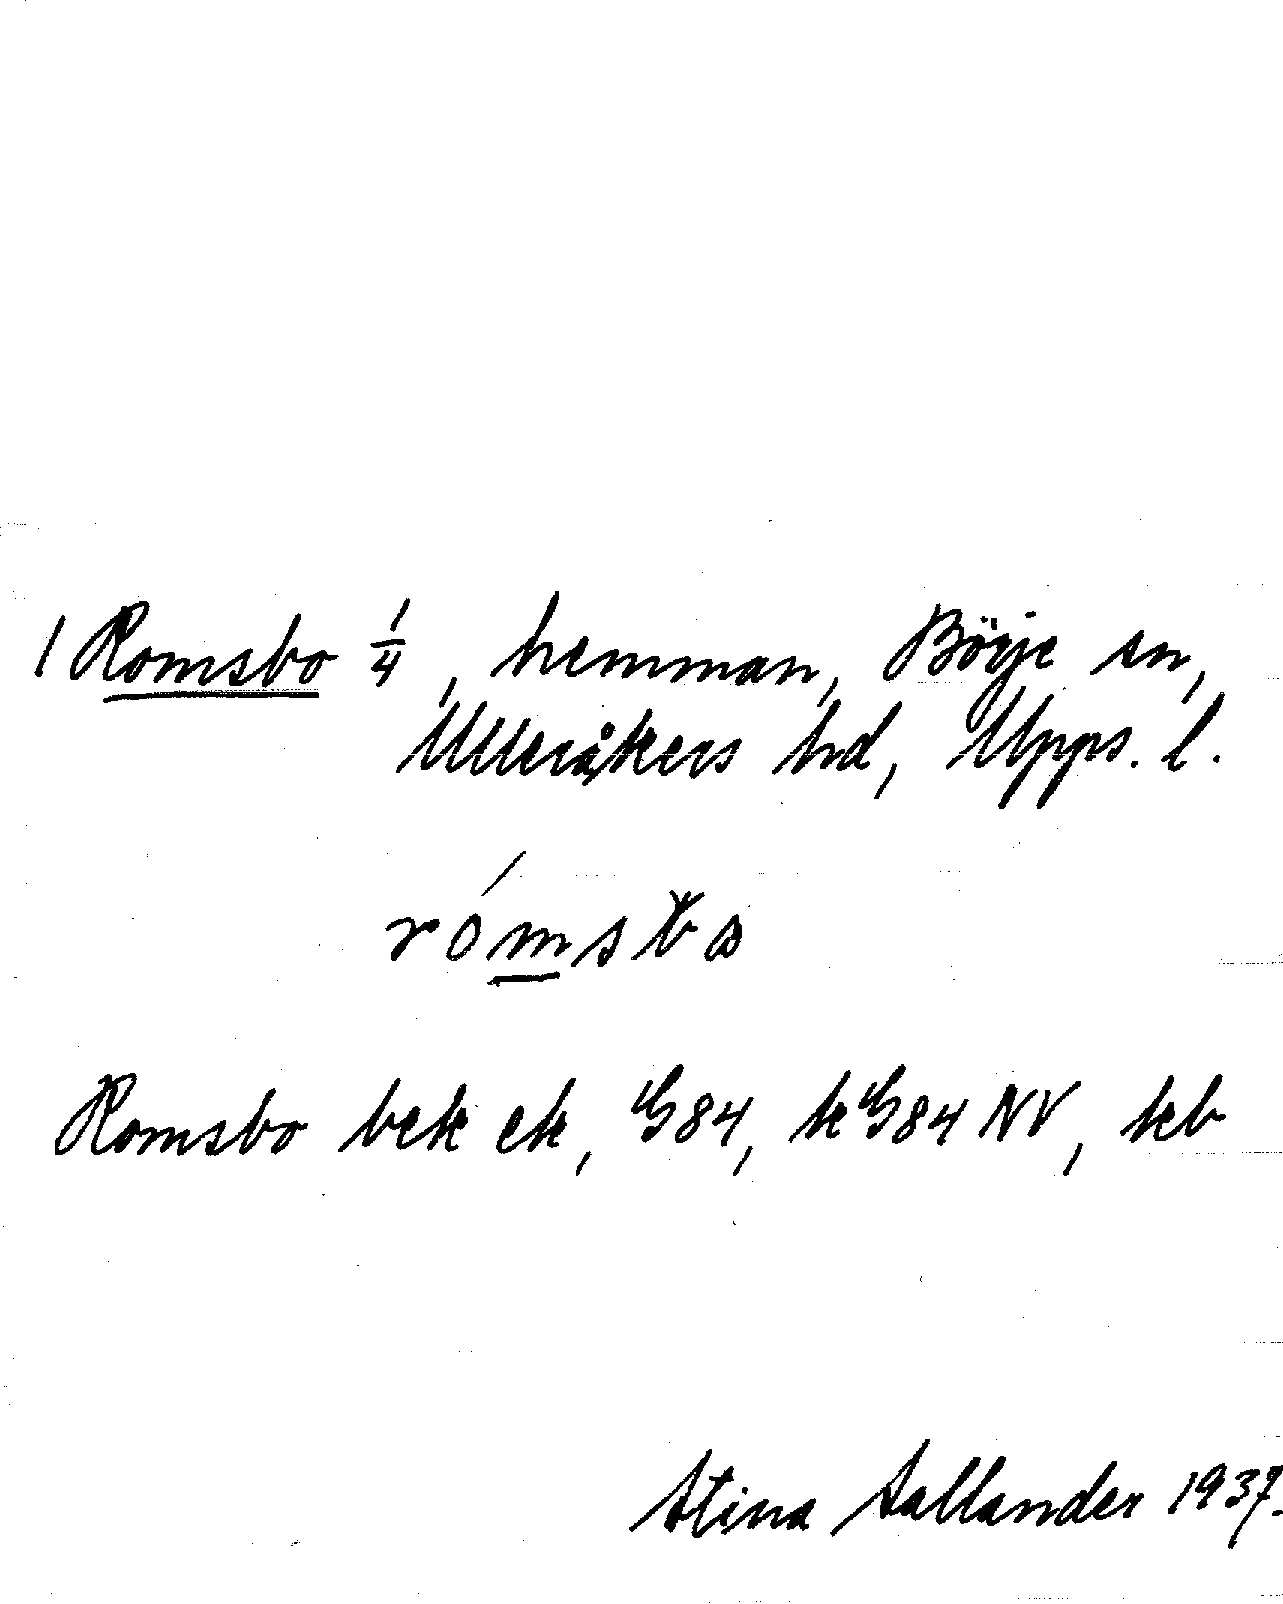 1 Romsbo 1/4, hemman, Börje sn,
Ulleråkers hd, Upps. l.
Romsbo bek ek, G84, kG84 NV, kb
Stina Sallander 1937.